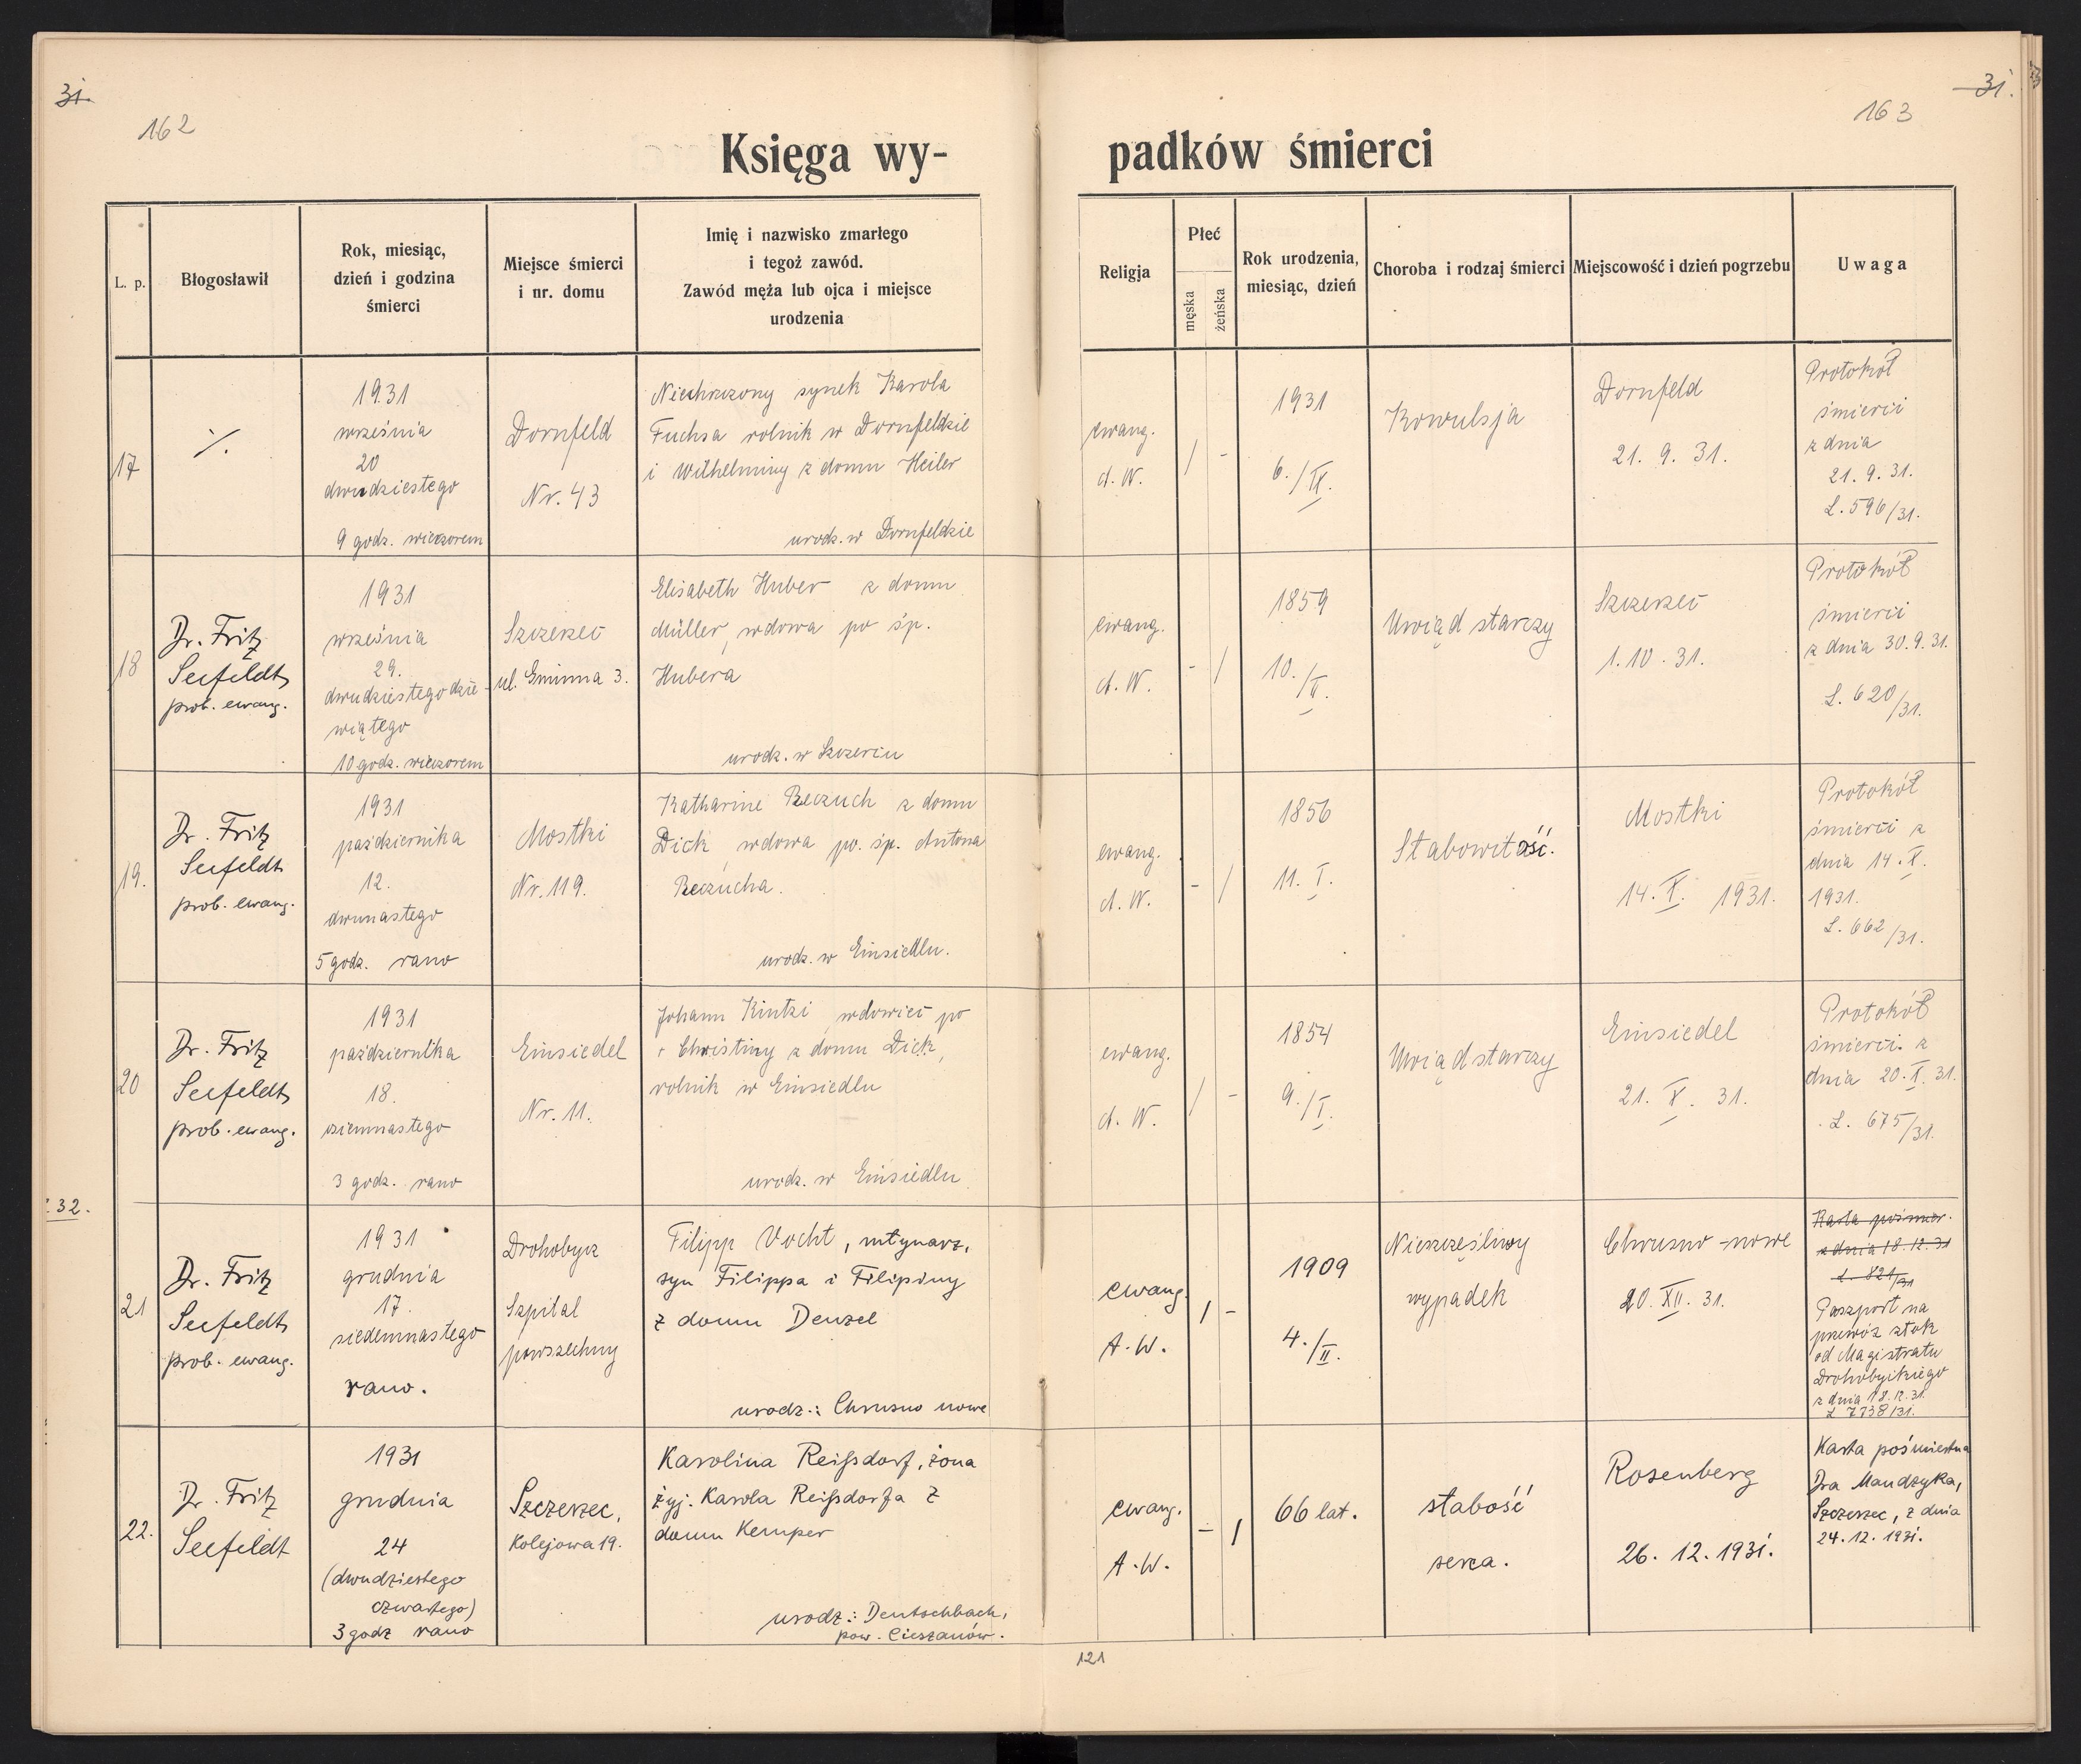 31.
31.
162
163
Księga wy-
padków śmierci
L. p.
Błogosławił
Rok, miesiąc,
dzień i godzina
śmierci
Miejsce śmierci
i nr. domu
Imię i nazwisko zmarłego
i tegoż zawód.
Zawód męża lub ojca i miejsce
urodzenia
Religja
Płeć
męska
żeńska
Rok urodzenia,
miesiąc, dzień
Choroba i rodzaj śmierci
Miejscowość i dzień pogrzebu
Uwaga
17
·/.
1931
września
20
dwudziestego
9 godz. wieczorem
Dornfeld
Nr. 43
Niechrzczony synek Karola
Fuchsa rolnik w Dornfeldzie
i Wilhelminy z domu Heiler
urodz. w Dornfeldzie
ewang.
A. W.
/
-
1931
6./IX.
Kowulsja
Dornfeld
21. 9. 31.
Protokół
śmierci
z dnia
21. 9. 31.
L. 596/31.
18
Dr. Fritz
Seefeldt
prob. ewang.
1931
września
29.
dwudziestego dzie-
wiątego
10 godz. wieczorem
Szczerzec
ul. Gminna 3.
Elisabeth Huber z domu
Müller, wdowa po śp.
Hubera
urodz. w Szczercu
ewang.
A. W.
-
/
1859
10./V.
Uwiąd starczy
Szczerzec
1. 10. 31.
Protokół
śmierci
z dnia 30. 9. 31.
L. 620/31.
19.
Dr. Fritz
Seefeldt
prob. ewang.
1931
października
12.
dwunastego
5 godz. rano
Mostki
Nr. 119.
Katharine Reczuch z domu
Dick, wdowa po. śp. Antona
Reczucha.
urodz. w Einsiedlu.
ewang.
A. W.
-
/
1856
11. I.
Słabowitość.
Mostki
14. X. 1931.
Protokół
śmierci z
dnia 14. X.
1931.
L. 662/31.
20
Dr. Fritz
Seefeldt
prob. ewang.
1931
października
18.
osiemnastego
3 godz. rano
Einsiedel
Nr. 11.
Johann Kintzi, wdowiec po
Christiny z domu Dick,
rolnik w Einsiedlu
urodz. w Einsiedlu
ewang.
A. W.
/
-
1854
9./I.
Uwiąd starczy
Einsiedel
21. X. 31.
Protokół
śmierci z
dnia 20. X. 31.
L. 675/31.
32.
21
Dr. Fritz
Seefeldt
prob. ewang.
1931
grudnia
17.
siedemnastego
rano.
Drohobycz
Szpital
powszechny
Filipp Vocht, młynarz,
syn Filippa i Filipiny
z domu Denzel
urodz.: Chrusno nowe
ewang.
A. W.
/
-
1909
4./II.
Nieszczęśliwy
wypadek
Chrusno-nowe
20. XII. 31.
Karta pośmier.
z dnia 18. 12. 31
L. 821/31
Paszport na
przewóz złok
od Magistratu
Drohobyckiego
z dnia 18. 12. 31.
L 7738/31.
22.
Dr. Fritz
Seefeldt
1931
grudnia
24
(dwudziestego
czwartego)
3 godz rano
Szczerzec,
Kolejowa 19.
Karolina Reißdorf, żona
żyj. Karola Reißdorfa z
domu Kemper
urodz.: Deutschbach,
pow. Cieszanów.
ewang.
A. W.
-
/
66 lat.
słabość
serca.
Rosenberg
26. 12. 1931.
Karta pośmiertna
Dra Mandzyka,
Szczerzec, z dnia
24. 12. 1931.
121